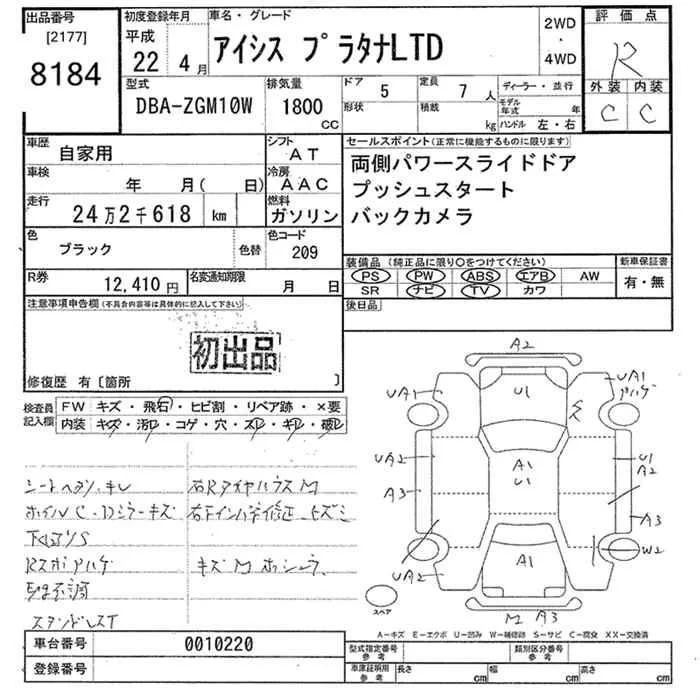 出品番号
[2177]
8184
初度登録年月
平成
22 4 月
車名・グレード
アイシス プラタナLTD
2WD
・
4WD
評価点
R
外装 内装
C C
型式
DBA-ZGM10W
排気量
1800
CC
ドア 5
形状
定員 7 人
積載 kg
ディーラー・並行
モデル年式 年
ハンドル 左・右
車歴
自家用
シフト
AT
車検
年 月( 日)
冷房
AAC
走行
24万2千618 km
燃料
ガソリン
色
ブラック
色替
色コード
209
R券
12,410 円
名変通知期限
月 日
セールスポイント(正常に機能するものに限ります)
両側パワースライドドア
プッシュスタート
バックカメラ
装備品(純正品に限り○をつけてください)
PS PW ABS エアB AW
SR ナビ TV カワ
新車保証書
有・無
後日品
注意事項申告欄(不具合内容等は具体的に記入して下さい)
初出品
修復歴 有〔箇所 〕
検査員記入欄
FW キズ・飛石・ヒビ割・リペア跡・×要
内装 キズ・汚レ・コゲ・穴・スレ・キレ・破レ
A2
UA1 U1 UA1
UA2 A1 U1
U1 A2
A3 A3
UA2 A1 W2
M A3
スペア
A−キズ E−エクボ U−凹み W−補修跡 S−サビ C−腐食 XX−交換済
キズ M
スタンドレスT
車台番号 0010220
登録番号
型式指定番号 参考
類別区分番号 参考
車庫証明用 参考
長さ cm 幅 cm 高さ cm